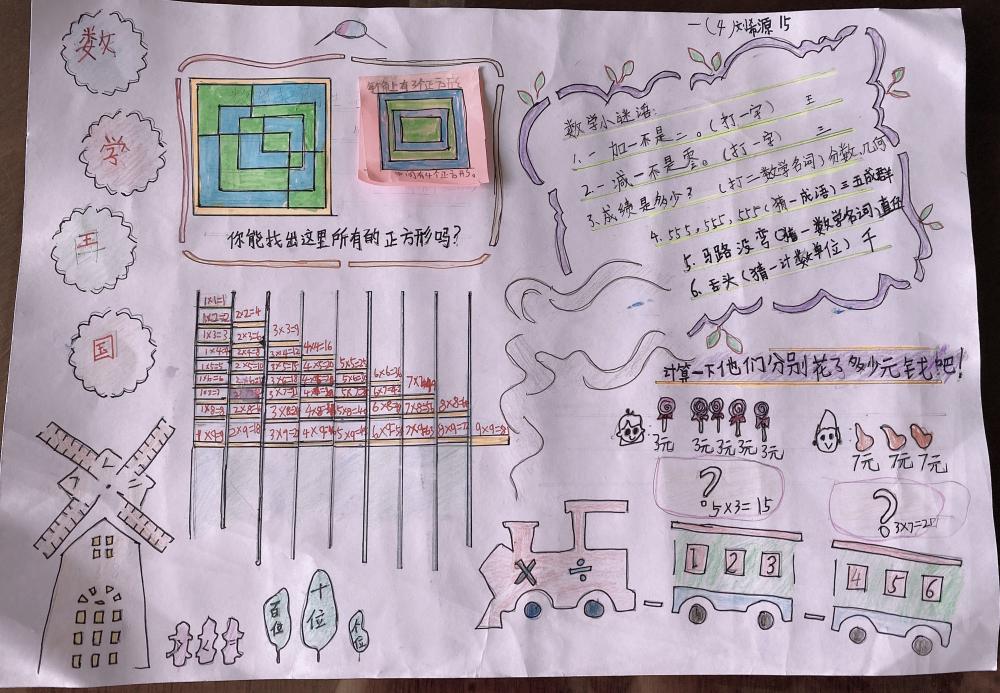 一(4)刘希源 15
数
学
王
国
每个角上有3个正方形
中间有4个正方形。
你能找出这里所有的正方形吗?
数学小谜语:
1. 一加一不是二。(打一字) 王
2. 一减一不是零。(打一字) 三
3. 成绩是多少? (打二数学名词) 分数、几何
4. 555,555,555(猜一成语)三五成群
5. 马路没弯(猜一数学名词)直径
6. 舌头(猜一计数单位) 千
1×1=1
1×2=2 2×2=4
1×3=3 2×3=6 3×3=9
1×4=4 2×4=8 3×4=12 4×4=16
1×5=5 2×5=10 3×5=15 4×5=20 5×5=25
1×6=6 3×6=18 5×6=30 6×6=36
1×7=7 3×7=21 6×7=42
1×8=8 2×8=16 3×8=24 4×8=32 5×8=40 6×8=48 7×8=56 8×8=64
1×9=9 2×9=18 3×9=27 4×9=36 5×9=45 6×9=54 7×9=63 8×9=72 9×9=81
计算一下他们分别花了多少元钱吧!
3元 3元 3元 3元 3元
7元 7元 7元
?
5×3=15
?
3×7=21
× ÷
1 2 3
4 5 6
百位
十位
个位